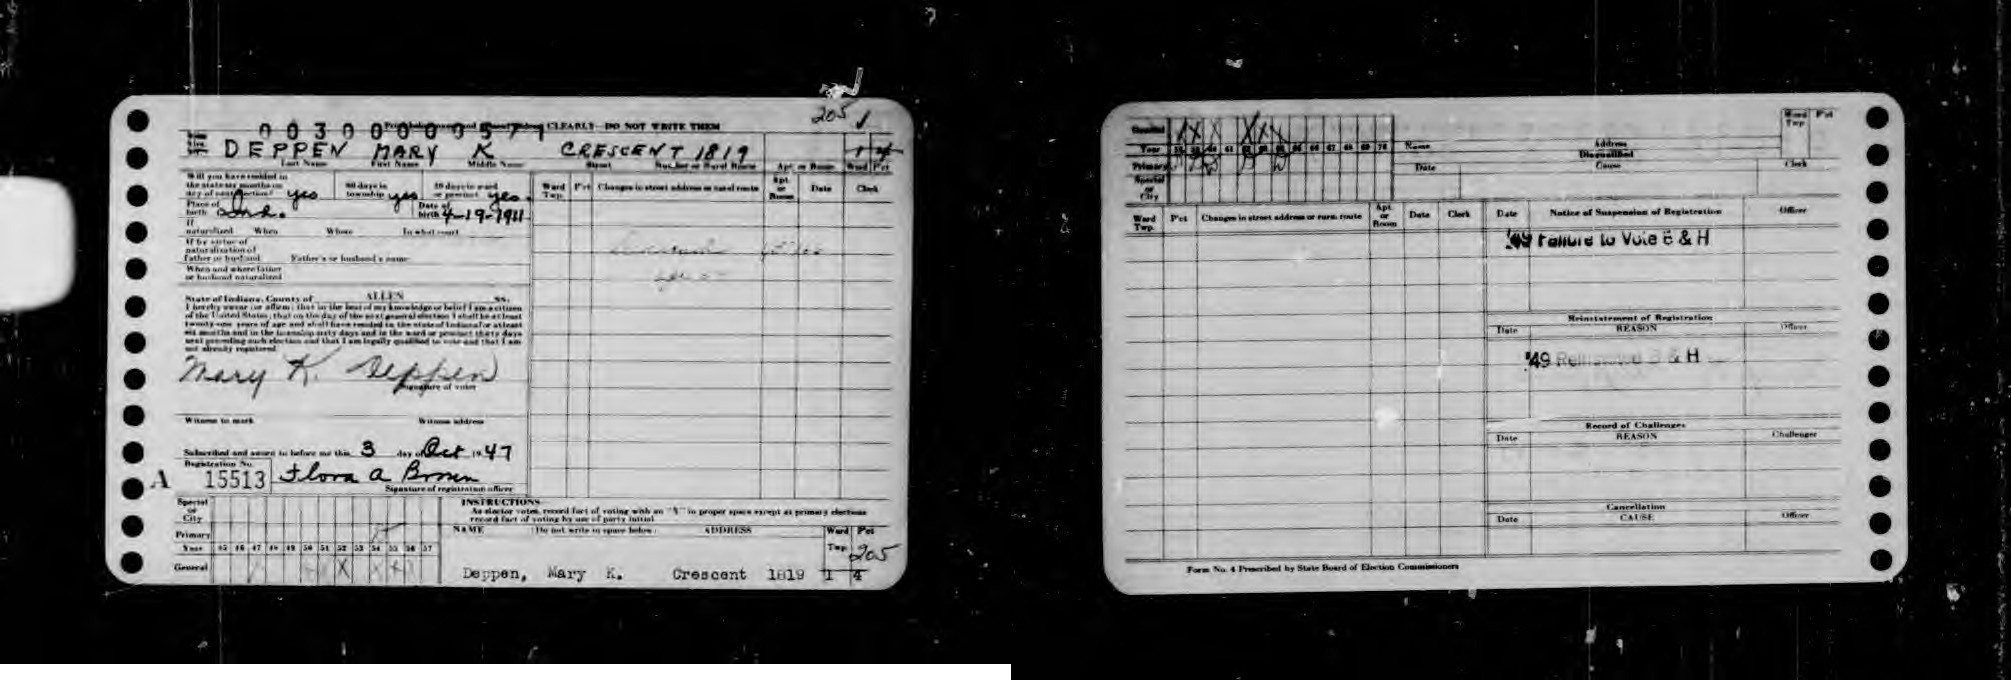 205
0030000571
CLEARLY—DO NOT WRITE THEM
DEPPEN MARY K CRESCENT 1819 1 4
Last Name First Name Middle Name Street Apt. or Room Ward Pct
Will you have resided in the state six months on day of next election? yes 60 days in township yes 30 days in ward or precinct yes.
Ward Twp. P'ct Changes in street address or rural route Apt. or Room Date Clerk
Place of birth Ind. Date of birth 4-19-1911
If naturalized When Where In what court
If by virtue of naturalization of Father or husband Father's or husband's name
When and where father or husband naturalized
State of Indiana, County of ALLEN ss.
I hereby swear (or affirm) that to the best of my knowledge or belief I am a citizen
of the United States; that on the day of the next general election I shall be at least
twenty-one years of age and shall have resided in the state of Indiana for at least
six months and in the township sixty days and in the ward or precinct thirty days
next preceding such election and that I am legally qualified to vote and that I am
not already registered
Mary K. Deppen
Signature of voter
Witness to mark Witness address
Subscribed and sworn to before me this 3 day of Oct 1947
Registration No.
A 15513 Flora A Brown
Signature of registration officer
Special or City
Primary
Year 45 46 47 48 49 50 51 52 53 54 55 56 57
General X X X X
INSTRUCTIONS
As elector votes, record fact of voting with an "X" in proper space except at primary elections
record fact of voting by use of party initial
NAME (Do not write in space below) ADDRESS Ward Twp. Pct
205
Deppen, Mary K. Crescent 1819 1 4
General X X X X X X
Year 60 61 65 66 67 68 69 70
Primary
Special or City
Name Address Ward Twp P'ct
Disqualified
Date Cause Clerk
Ward Twp. P'ct Changes in street address or rural route Apt. or Room Date Clerk
Date Notice of Suspension of Registration Officer
'49 Failure to Vote B & H
Reinstatement of Registration
Date REASON Officer
'49 Reinstated B & H
Record of Challenges
Date REASON Challenger
Cancellation
Date CAUSE Officer
Form No. 4 Prescribed by State Board of Election Commissioners